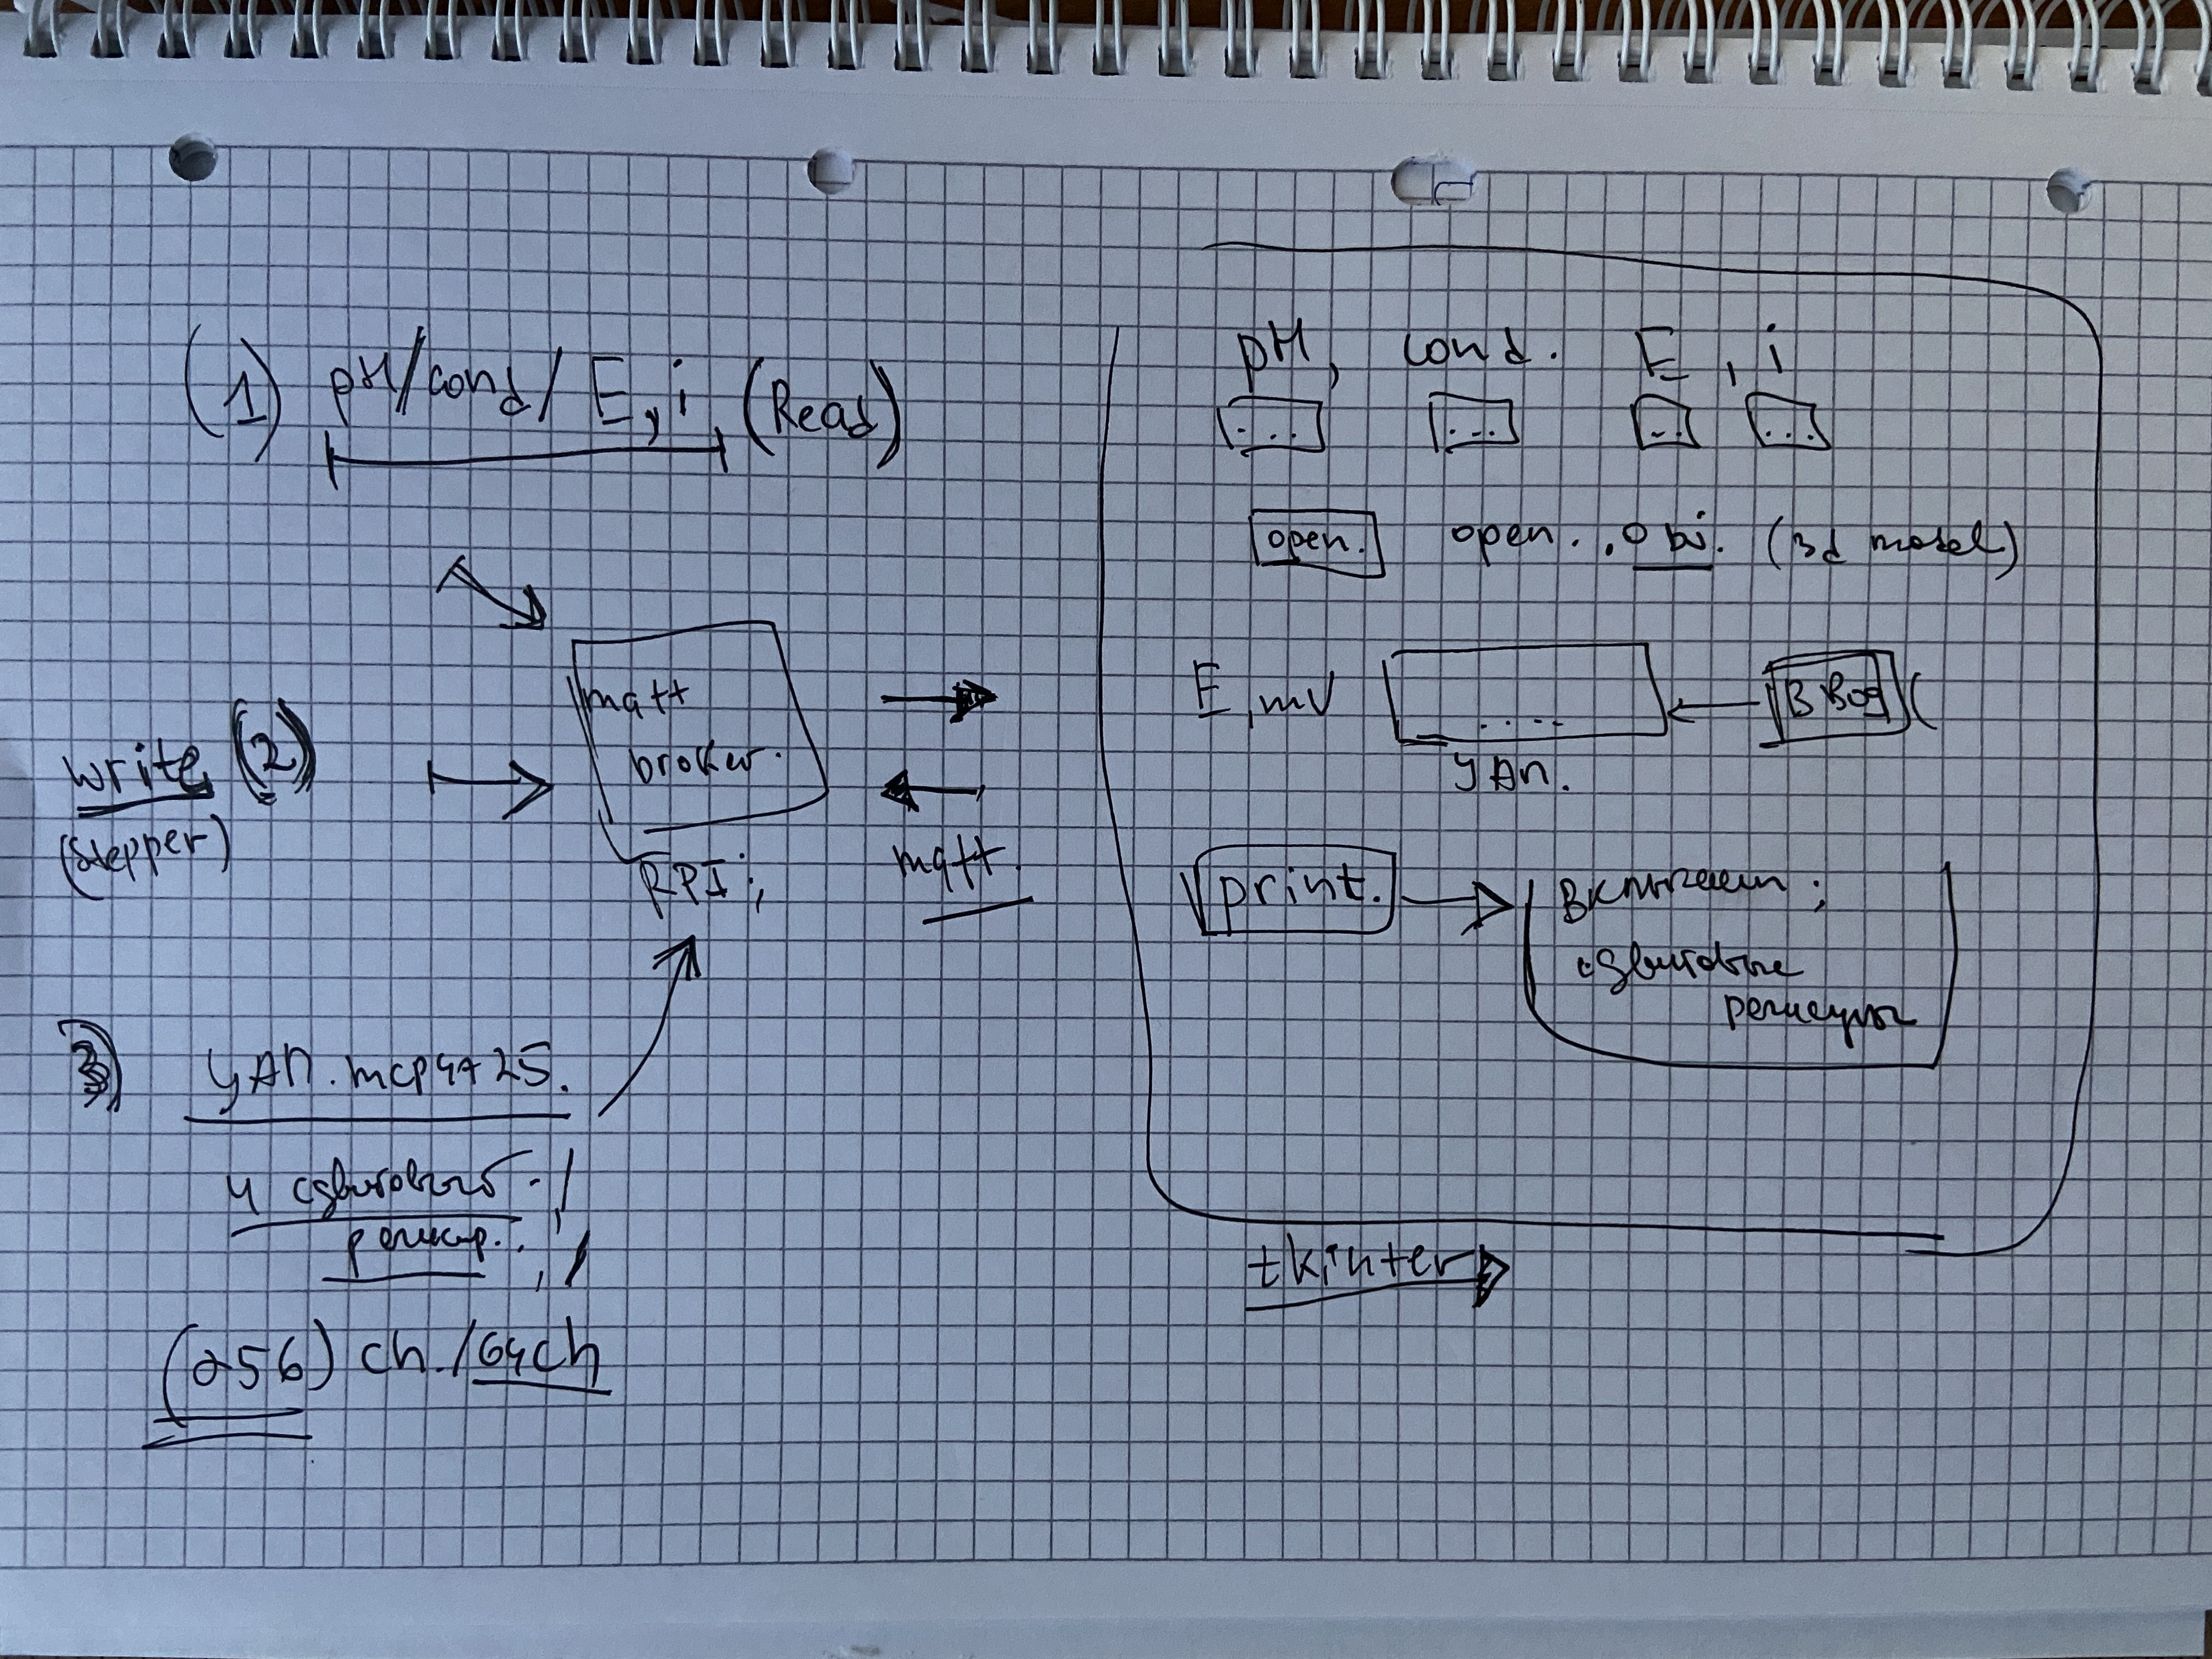 (1) pH/cond/ E, i (Read)
mqtt
broker.
RPI;
write (2)
(stepper)
mqtt.
3) ЦАП. mcp4725.
и сдвиговый
регистр.
(256) ch. / 64ch
pH, cond. E, i
... ... ... ...
open. open. .obj. (3d model)
E, mV .... ← ввод (
ЦАП.
print. → включает;
сдвиговые
регистры
tkinter